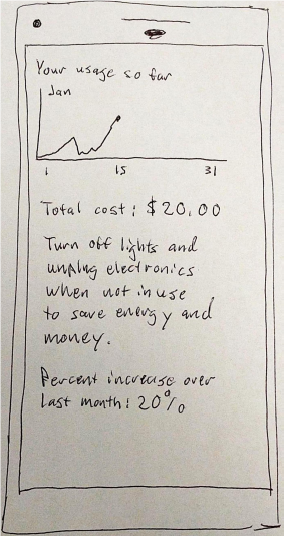 Your usage so far
Jan
1 15 31
Total cost: $20.00
Turn off lights and
unplug electronics
when not in use
to save energy and
money.
Percent increase over
last month: 20%